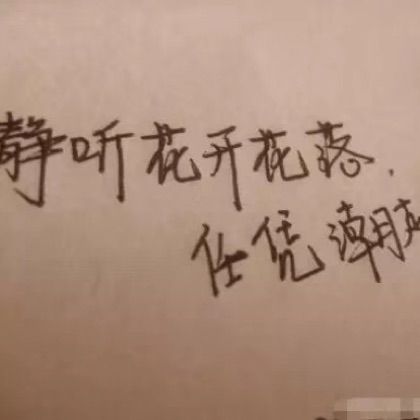 静听花开花落，
任凭潮